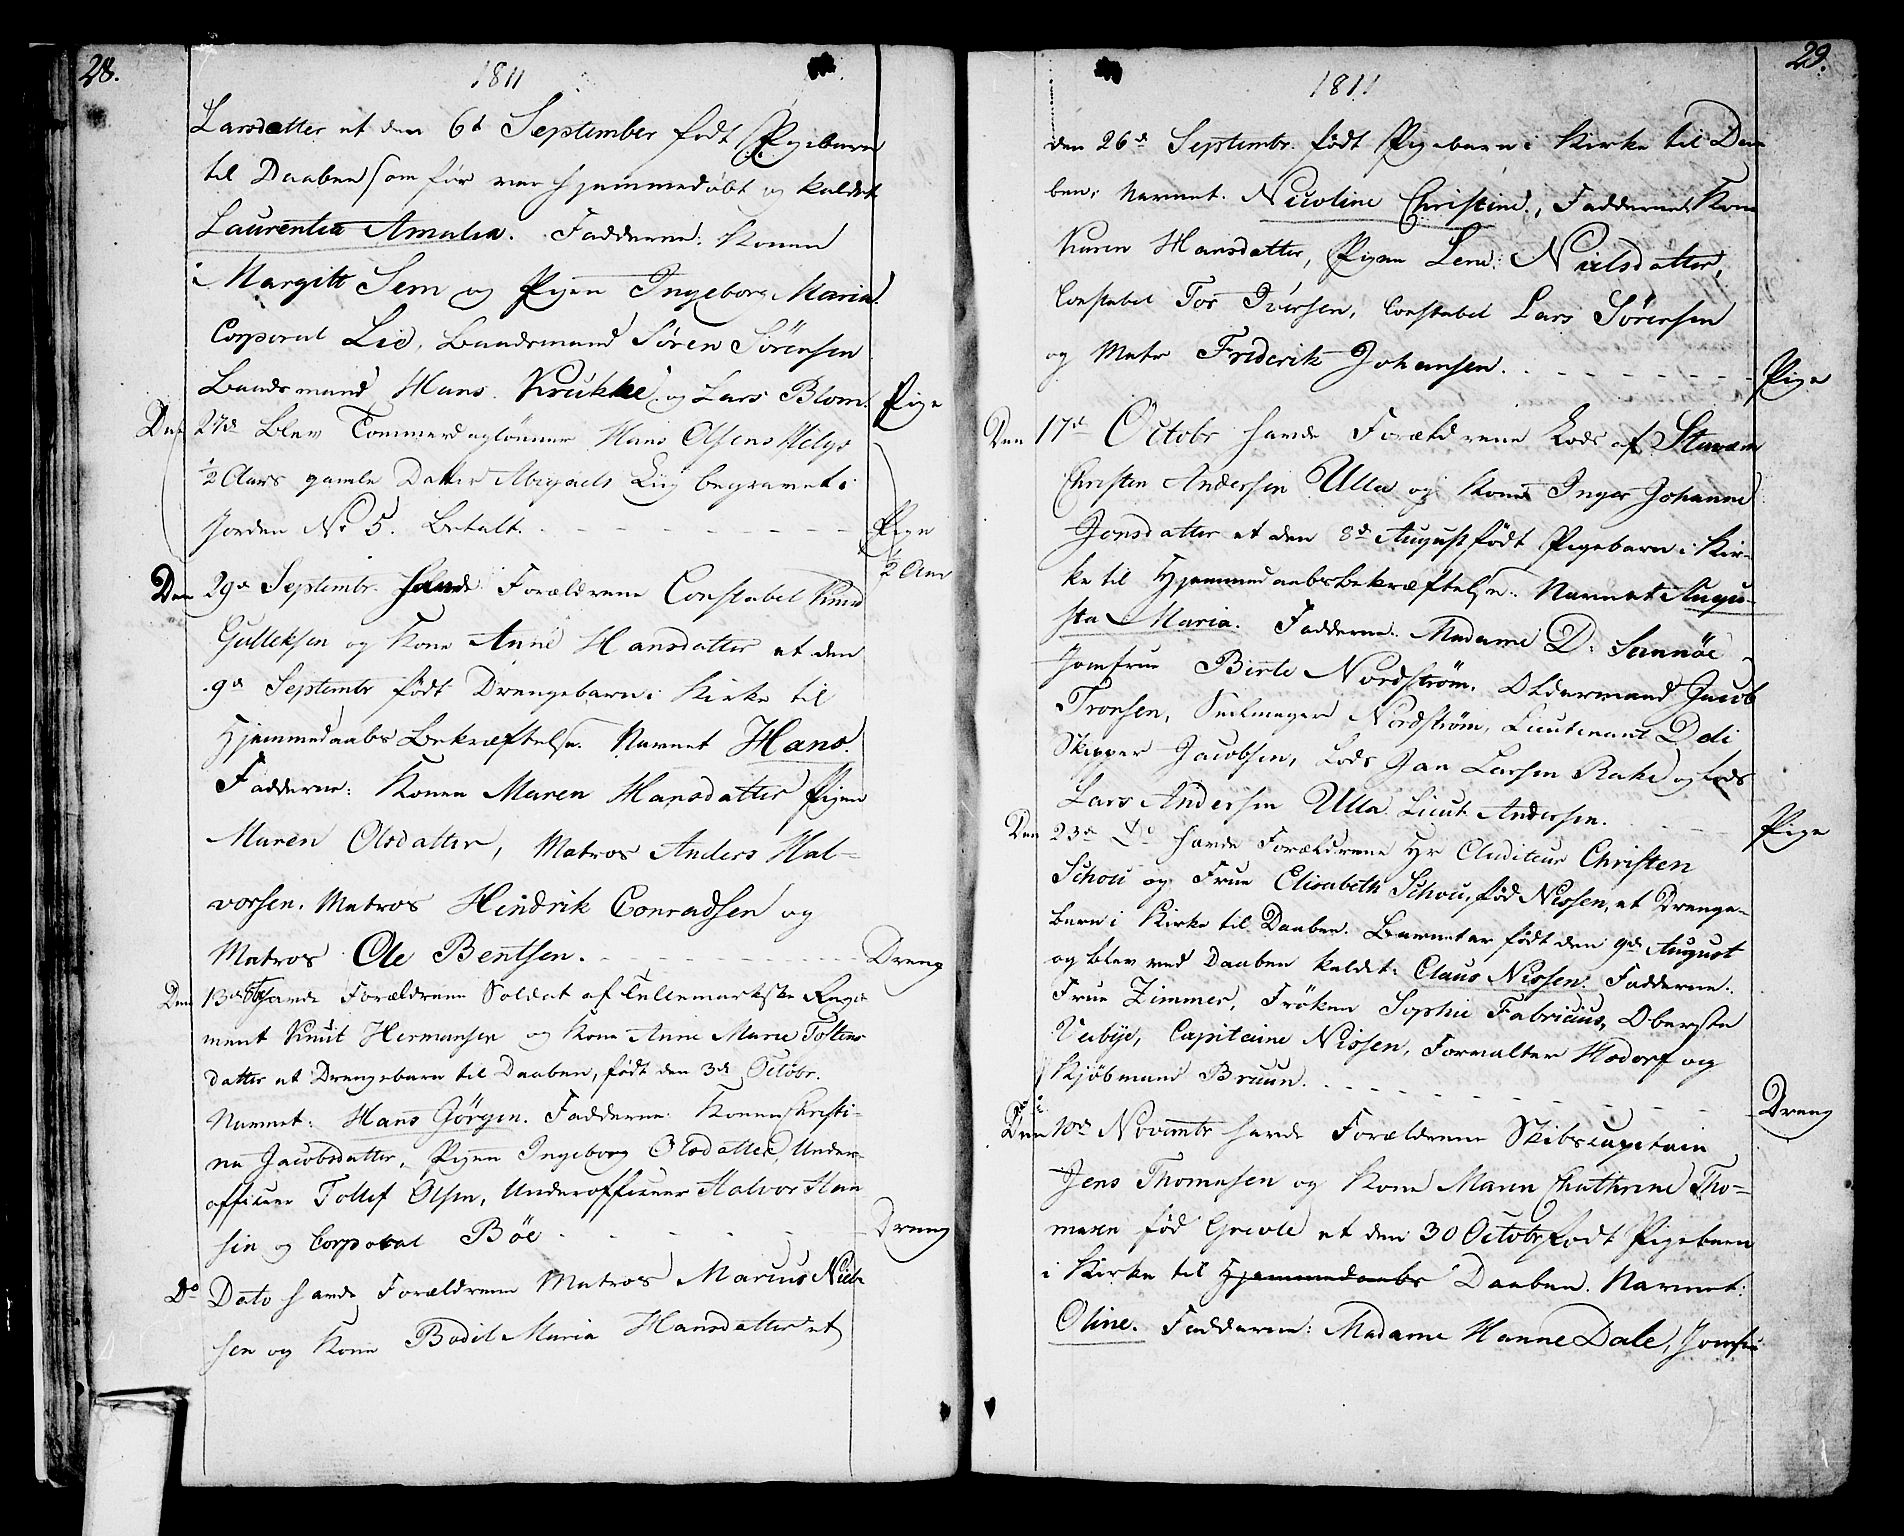 28.
1811
Larsdatter et den 6d September födt Pigebarn
til Daaben som för var hjemmedöbt og kaldet
Laurentia Amalia. Fadderne: Konen
Margitt Sem og Pigen Ingeborg Maria
Corporal Lie, Baadsmand Sören Sörensen
Baadsmand Hans Krukke og Lars Blom. Pige
Den 27de Blev Tommermands Hans Olsens
1/2 Aars gamle Datter Abigaels Liig begravet i
Jorden No 5. Betalt. Pige
1/2 Aar
Den 29de Septembr. havde Forældrene Constabel Knud
Gulleksen og Kone Anne Hansdatter et den
9de Septembr födt Drengebarn i Kirke til
Hjemmedaabs Bekræftelse. Navnet Hans.
Fadderne: Konen Maren Hansdatter Pigen
Maren Olsdatter, Matros Anders Hal-
vorsen, Matros Hindrik Conradsen og
Matros Ole Bentsen. Dreng
Den 13de havde Forældrene Soldat af Tellemarkske Regi-
ment Knut Hermansen og Kone Anne Marie Toltens
datter et Drengebarn til Daaben, födt den 3de Octobr.
Navnet: Hans Jörgen. Fadderne: Konen Christi-
ne Jacobsdatter, Pigen Ingeborg Olsdatter, Under-
officeer Tollef Olsen, Underofficeer Halvor Han
sen og Corporal Böe Dreng
Do Dato havde Forældrene Matros Marius Niel-
sen og Kone Bodil Maria Hansdatter et
29.
1811
den 26de Septembr. födt Pigebarn i Kirke til Daa
ben. Navnet. Nicoline Christine, Fadderne: Kone
Karen Hansdatter, Pigen Lene Nielsdatter,
Constabel Tor Iversen, Constabel Lars Sörensen
og Matr Friderik Johansen. Pige
Den 17de Octobr havde Forældrene Lods af Staværn
Christen Andersen Ulla og Kone Inger Johanne
Jonsdatter et den 8de August födt Pigebarn i Kir-
ke til Hjemmedaabsbekræftelse. Navnet Augu-
sta Maria. Fadderne. Madame D. Sannöe
Jomfrue Birte Nordström. Oldermand Jacob
Tronsen, Seilmager Nordström, Lieutenant Dedi
Skipper Jacobsen, Lods Jan Larsen Rake og Lods
Lars Andersen Ulla Lieut Andersen. Pige
Den 23de Do havde Forældrene Hr Auditeur Christen
Schou og Frue Elisabeth Schou, föd Nissen, et Drenge-
barn i Kirke til Daaben. Barnet er födt den 9de August
og blev ved Daaben kaldet: Claus Nissen. Fadderne:
Frue Zimmer, Fröken Sophie Fabricius, Oberste
Veibye, Capitaine Nissen, Forvalter Hodorf og
Kjöbmand Bruun. Dreng
Den 10de Novembr havde Forældrene Skibscapitain
Jens Thomesen og Kone Maren Chathrine Tho-
mesen föd Greole et den 30 Octobr födt Pigebarn
i Kirke til Hjemmedaabs Daaben. Navnet:
Oline. Fadderne: Madame Hanne Dale, Jomfru